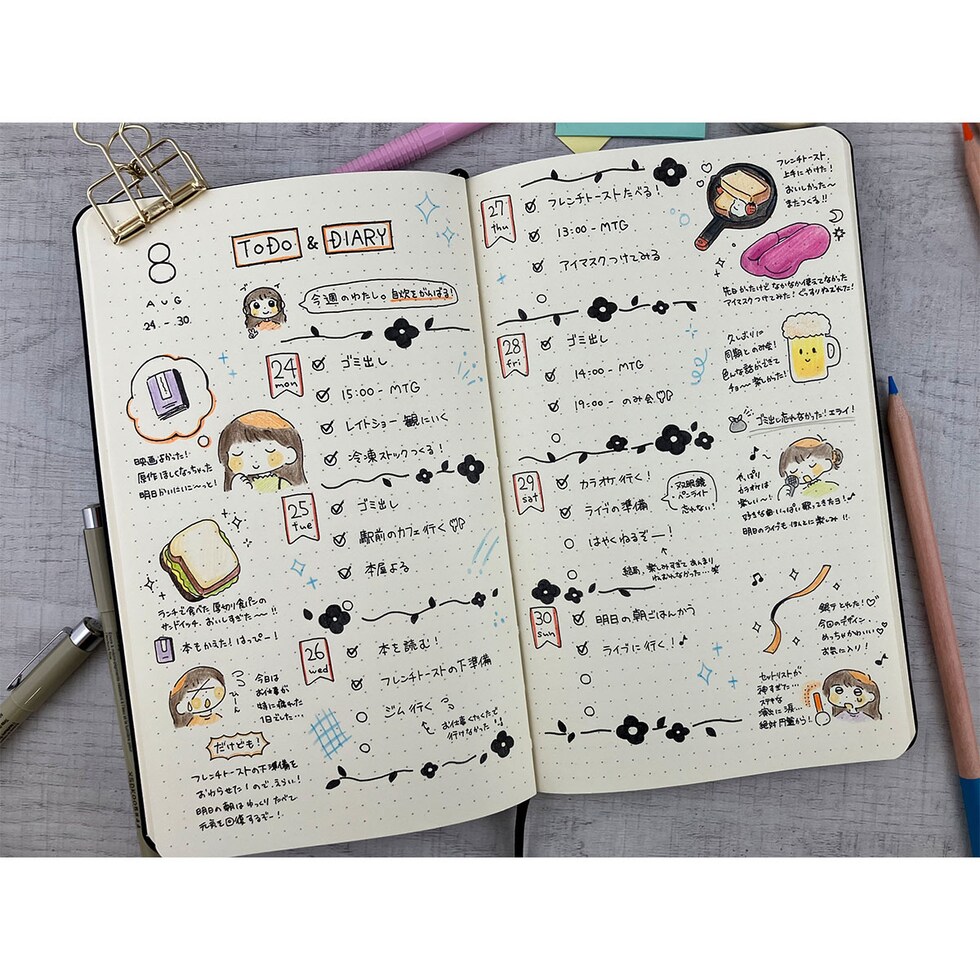 8
AUG
24 - 30
ToDo & DIARY
今週のわたし。自炊をがんばる!
24
mon
ゴミ出し
15:00 - MTG
レイトショー観にいく
冷凍ストックつくる!
映画よかった!
原作ほしくなっちゃった
明日かいにいこ〜っと!
25
tue
ゴミ出し
駅前のカフェ行く
本屋よる
ランチで食べた厚切り食パンの
サンドイッチ、おいしすぎた〜!!
本もかえた! はっぴー!
26
wed
本を読む!
フレンチトーストの下準備
ジム行く
お仕事くたくたで
行けなかった!!
ひーん
今日は
お仕事が
特に疲れた
1日でした…
だけども!
フレンチトーストの下準備を
おわらせた!ので、えらい!
明日の朝はゆっくりたべて
元気を回復するぞー!
27
thu
フレンチトーストたべる!
13:00 - MTG
アイマスクつけてみる
フレンチトースト
上手にやけた!
おいしかった〜
またつくる!!
先日かったけどなかなか使えてなかった
アイマスクつけてみた! ぐっすりやすれた!
28
fri
ゴミ出し
14:00 - MTG
19:00 - のみ会
久しぶりに
同期とのみ会!
色んな話ができて
チョー楽しかった!
ゴミ出し忘れなかった! エライ!
29
sat
カラオケ行く!
ライブの準備
はやくねるぞー!
・双眼鏡
・ペンライト
忘れない!
結局、楽しみすぎてあんまり
ねむれなかった…笑
やっぱり
カラオケは
楽しい〜!
好きな曲いっぱい歌ってきたヨ!
明日のライブもほんとに楽しみ!!
30
sun
明日の朝ごはんかう
ライブに行く!
銀テとれた!
今回のデザイン
めっちゃかわいい
お気に入り!
セットリストが
神すぎた…
ステキな
演出に涙…
絶対円盤かう!